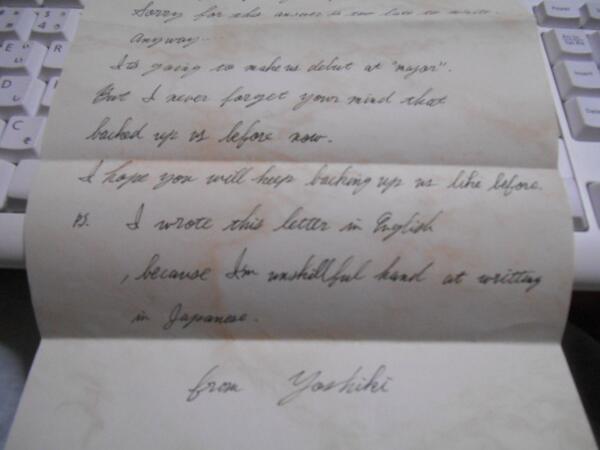 Sorry for this answer is too late to write.
Anyway...
It's going to make us debut at "major".
But I never forget your mind that
backed up us before now.
I hope you will keep backing up us like before.
PS. I wrote this letter in English
, because I'm unskillful hand at writting
in Japanese.
from Yoshiki
Power
Insert
Delete
E
D
C
R